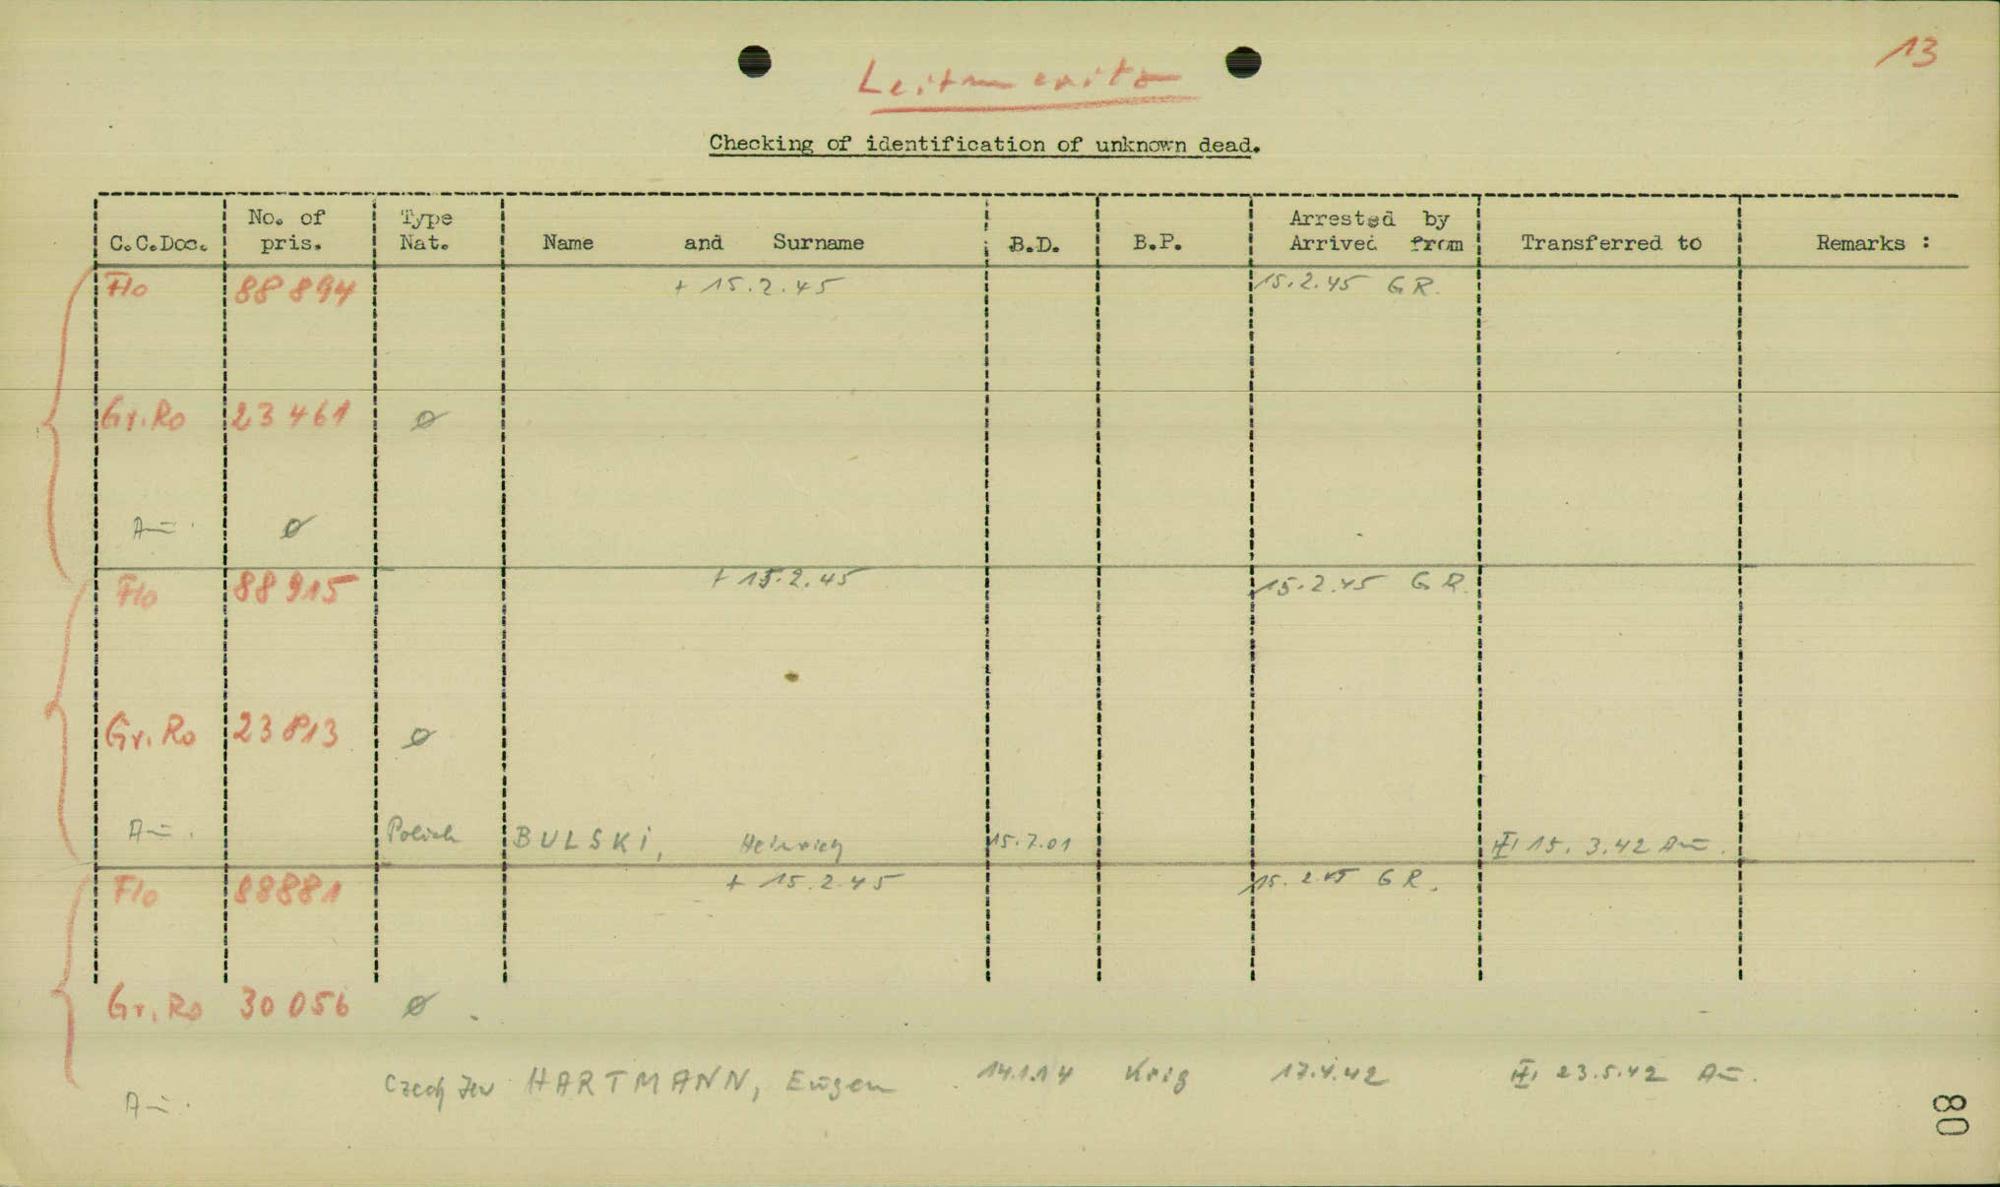 13
Leitmeritz
Checking of identification of unknown dead.
C.C.Doc. No. of pris. Type Nat. Name and Surname B.D. B.P. Arrested by Arrived from Transferred to Remarks :
Flo 88894 + 15.2.45 15.2.45 GR.
Gr.Ro 23461 ø
Au. ø
Flo 88915 + 15.2.45 15.2.45 GR.
Gr.Ro 23813 ø
Au. Polish BULSKI, Heinrich 15.7.01 15.3.42 Au.
Flo 88881 + 15.2.45 15.2.45 GR.
Gr.Ro 30056 ø
Au. Czech Jew HARTMANN, Eugen 14.1.14 17.4.42 23.5.42 Au.
80